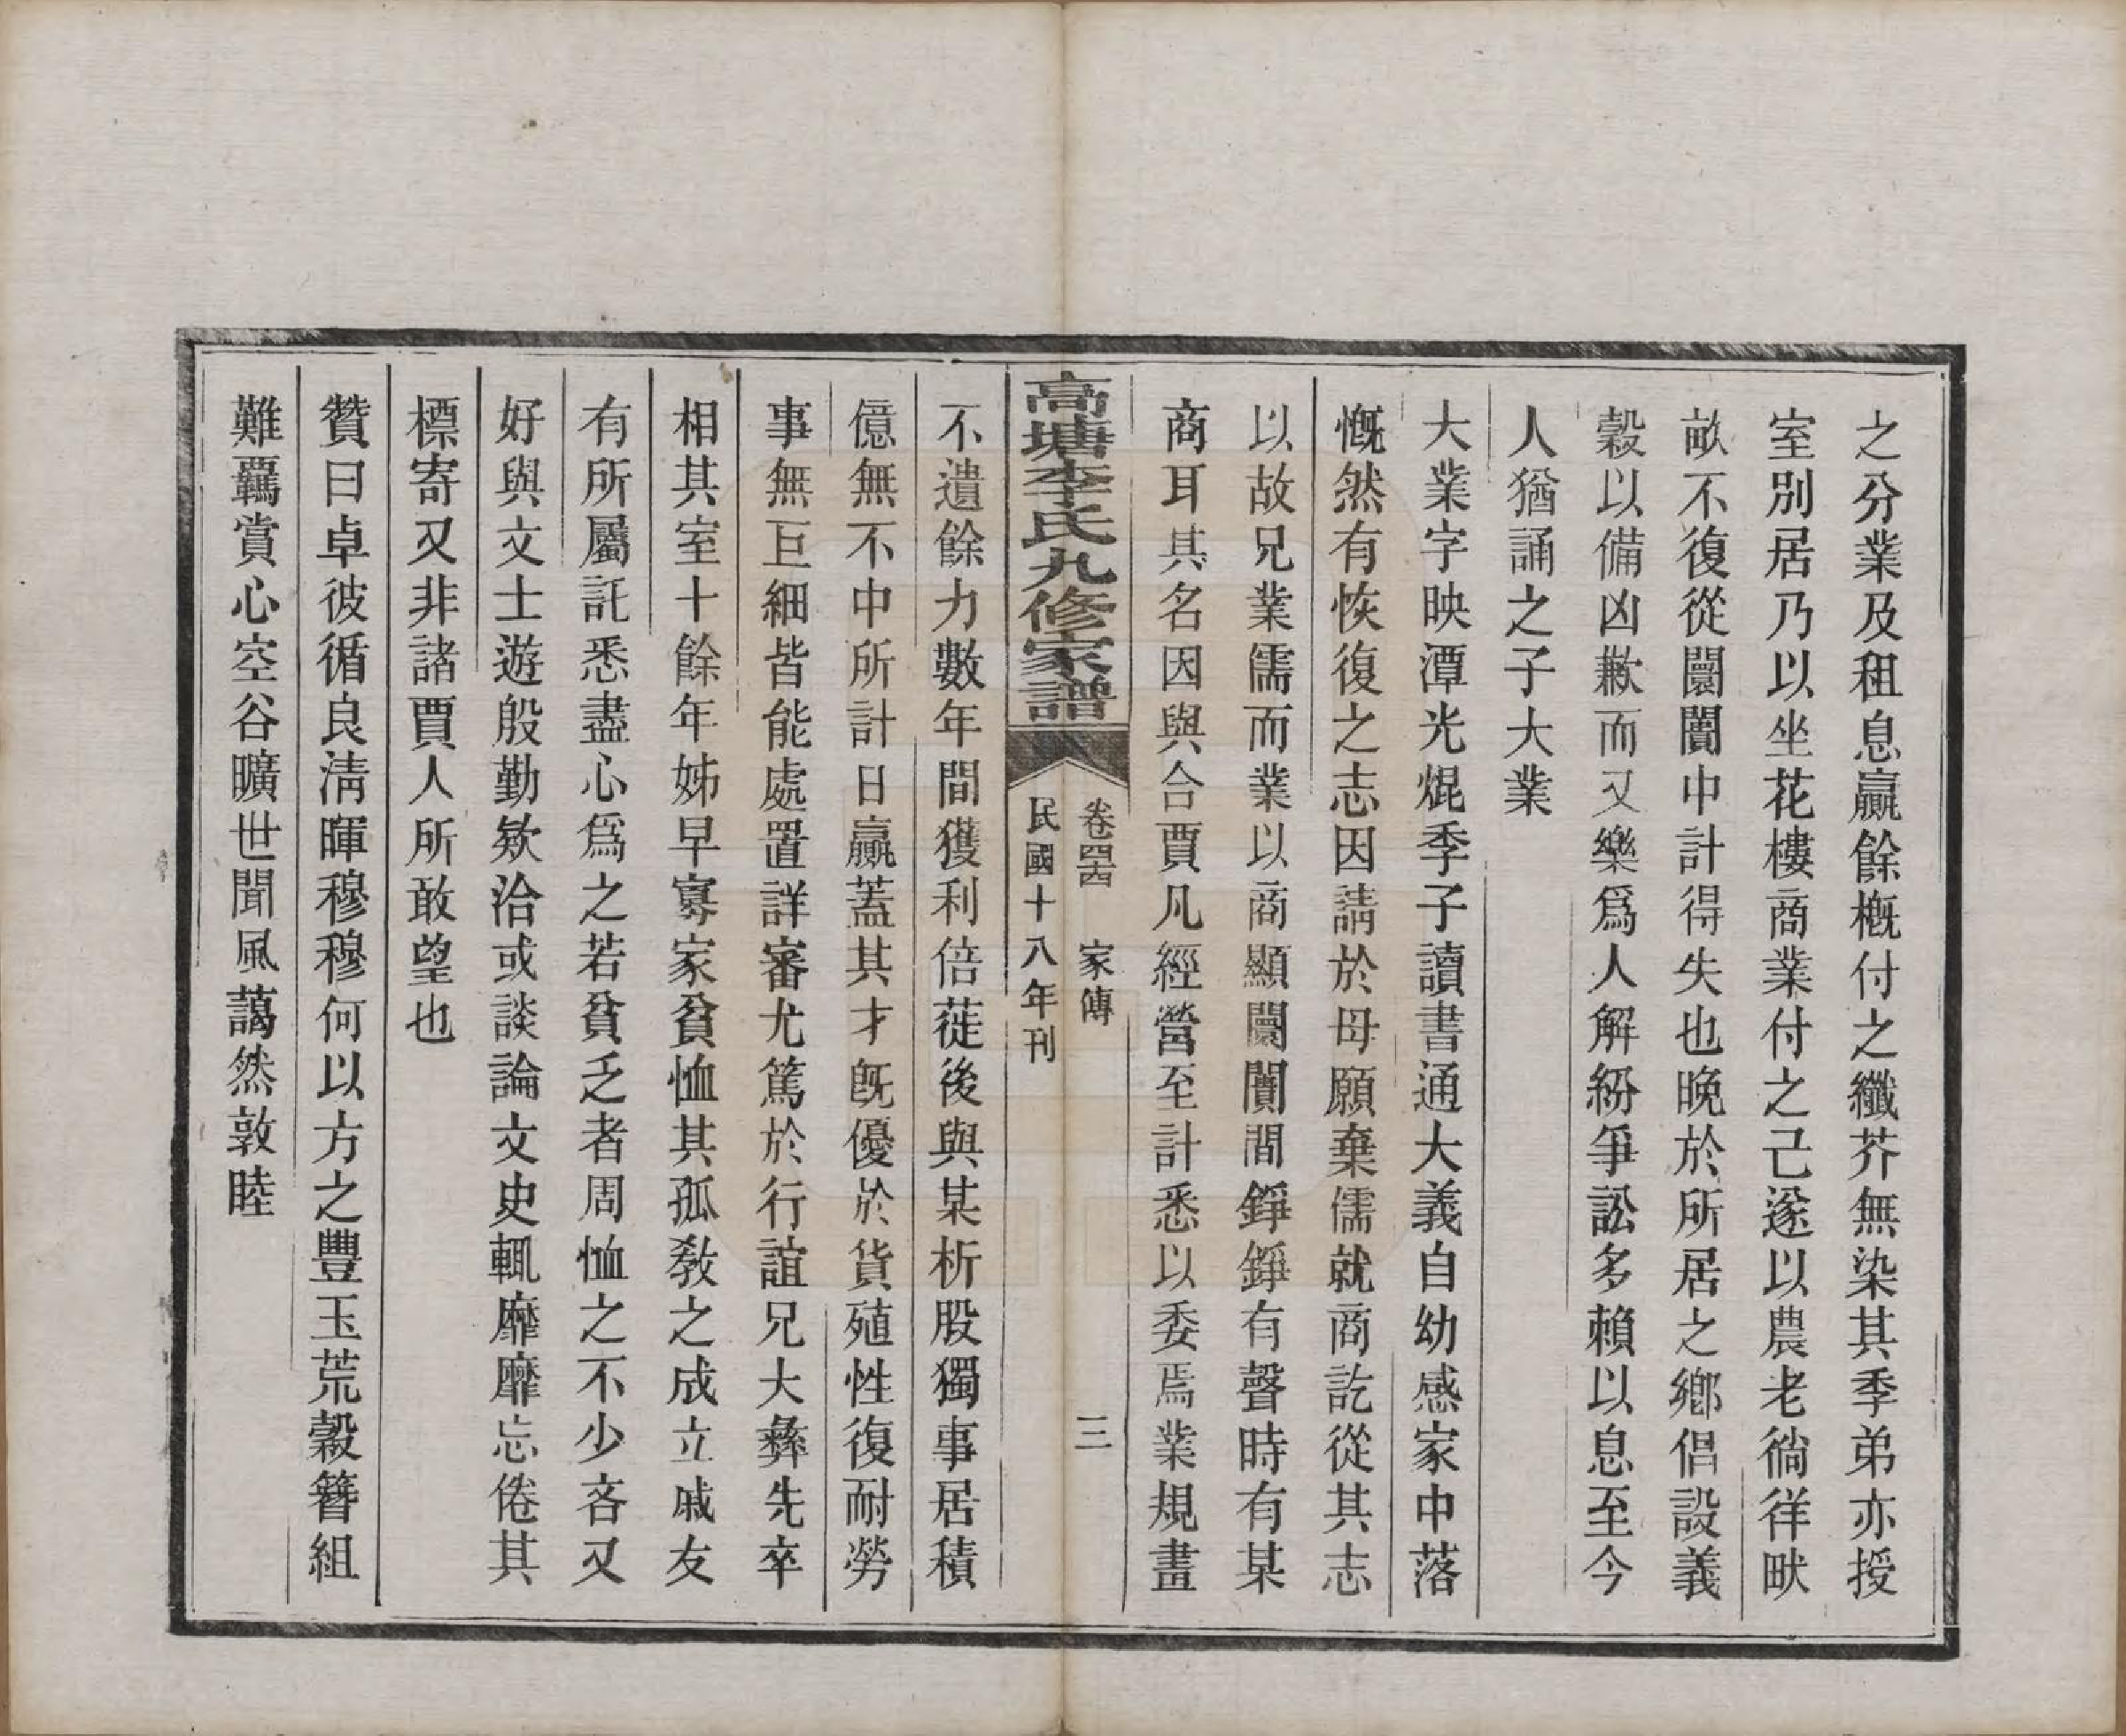 之分業及租息贏餘概付之纖芥無染其季弟亦授
室別居乃以坐花樓商業付之己遂以農老徜徉畎
畝不復從闤闠中計得失也晚於所居之鄉倡設義
穀以備凶歉而又樂爲人解紛爭訟多賴以息至今
人猶誦之子大業
大業字映潭光焜季子讀書通大義自幼感家中落
慨然有恢復之志因請於母願棄儒就商訖從其志
以故兄業儒而業以商顯闤闠間錚錚有聲時有某
商耳其名因與合賈凡經營至計悉以委焉業規畫
高塘李氏九修家譜
卷四十四 家傳 三
民國十八年刊
不遺餘力數年間獲利倍蓰後與某析股獨事居積
億無不中所計日贏蓋其才既優於貨殖性復耐勞
事無巨細皆能處置詳審尤篤於行誼兄大彝先卒
相其室十餘年姊早寡家貧恤其孤教之成立戚友
有所屬託悉盡心爲之若貧乏者周恤之不少吝又
好與文士遊殷勤欵洽或談論文史輒靡靡忘倦其
標寄又非諸賈人所敢望也
贊曰卓彼循良淸暉穆穆何以方之豐玉荒穀簪組
難羈賞心空谷曠世聞風藹然敦睦